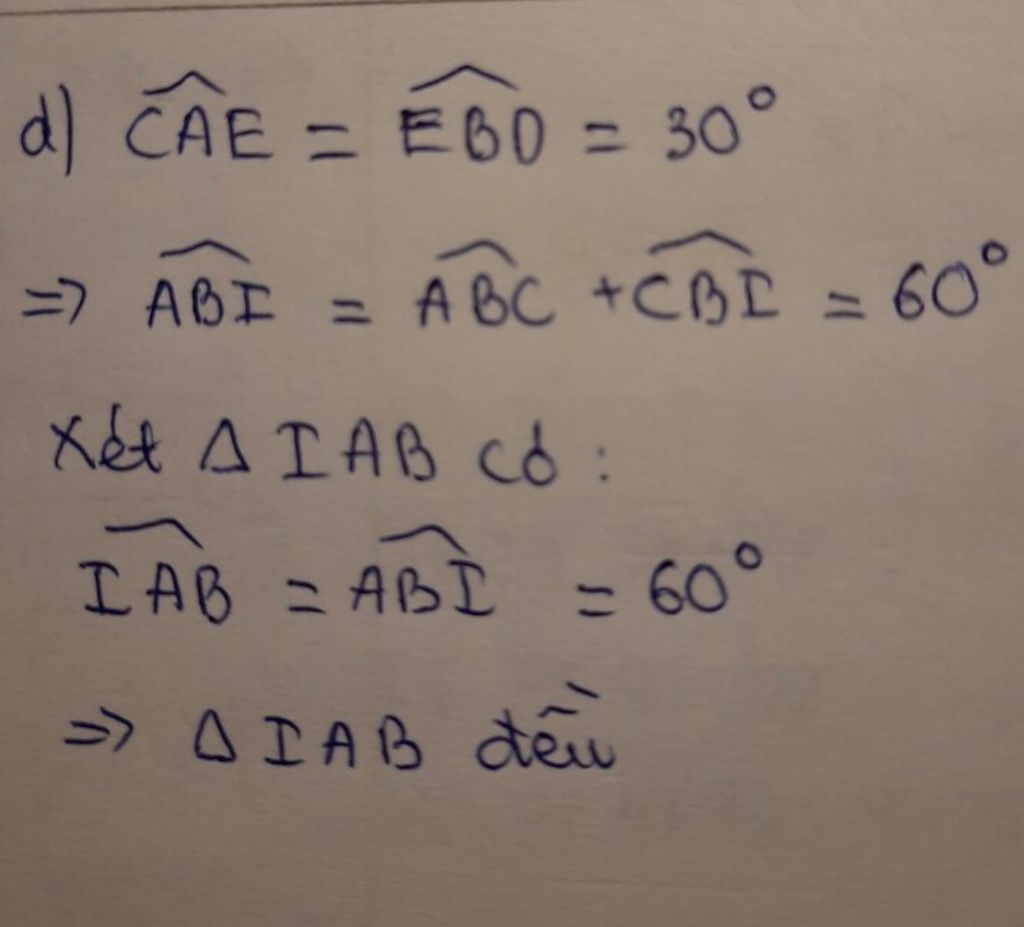 d) \widehat{CAE} = \widehat{EBD} = 30°
=> \widehat{ABI} = \widehat{ABC} + \widehat{CBI} = 60°
Xét Δ IAB có :
\widehat{IAB} = \widehat{ABI} = 60°
=> Δ IAB đều